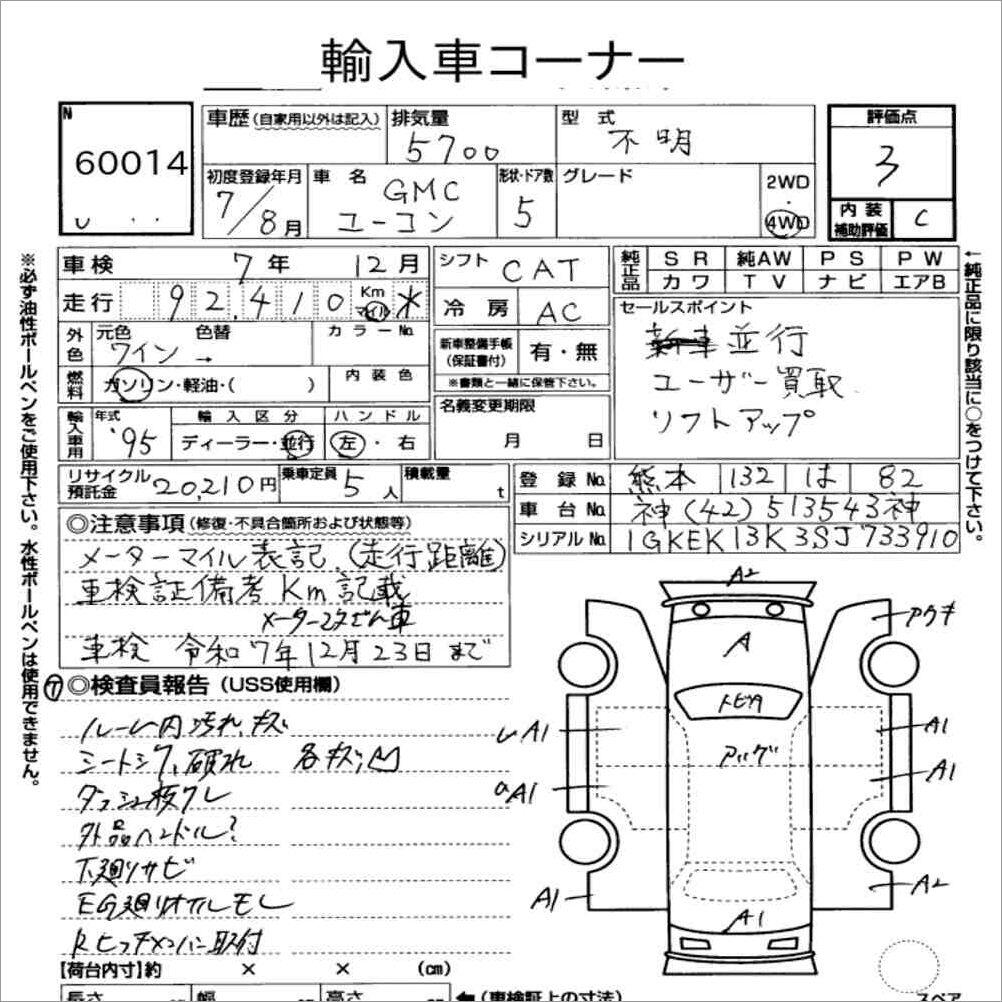 輸入車コーナー
N 60014
車歴(自家用以外は記入) 排気量 5700 型式 不明
評価点 3
初度登録年月 7/8月 車名 GMC ユーコン 形状・ドア数 5 グレード 2WD・4WD
内装補助評価 C
車検 7年 12月 シフト CAT
走行 92,410 Km マイル ※ 冷房 AC
純正品 SR 純AW PS PW
カワ TV ナビ エアB
外色 元色 ワイン 色替 → カラーNo.
新車整備手帳(保証書付) 有・無
※書類と一緒に保管下さい。
燃料 ガソリン・軽油・( ) 内装色
セールスポイント
並行
ユーザー買取
リフトアップ
輸入車用 年式 '95 輸入区分 ディーラー・並行 ハンドル 左・右
名義変更期限 月 日
リサイクル預託金 20,210円 乗車定員 5人 積載量 t
登録No. 熊本 132 は 82
車台No. 神(42)513543神
シリアルNo. 1GKEK13K3SJ733910
◎注意事項(修復・不具合箇所および状態等)
メーターマイル表記(走行距離)
車検証備考Km記載
車検 令和7年12月23日まで
⑦◎検査員報告(USS使用欄)
ルーム内汚れ、キズ
シートシワ、破れ 各キズ、凹
外品ハンドル?
下廻りサビ
EG廻りオイルモレ
Rヒッチメンバー取付
A2
A
トビキズ
A1
A1
A1
A1
A1
A2
A1
【荷台内寸】約 × × (cm)
長さ 幅 高さ ←(車検証上の寸法)
スペア
※必ず油性ボールペンをご使用下さい。水性ボールペンは使用できません。
←純正品に限り該当に○をつけて下さい。